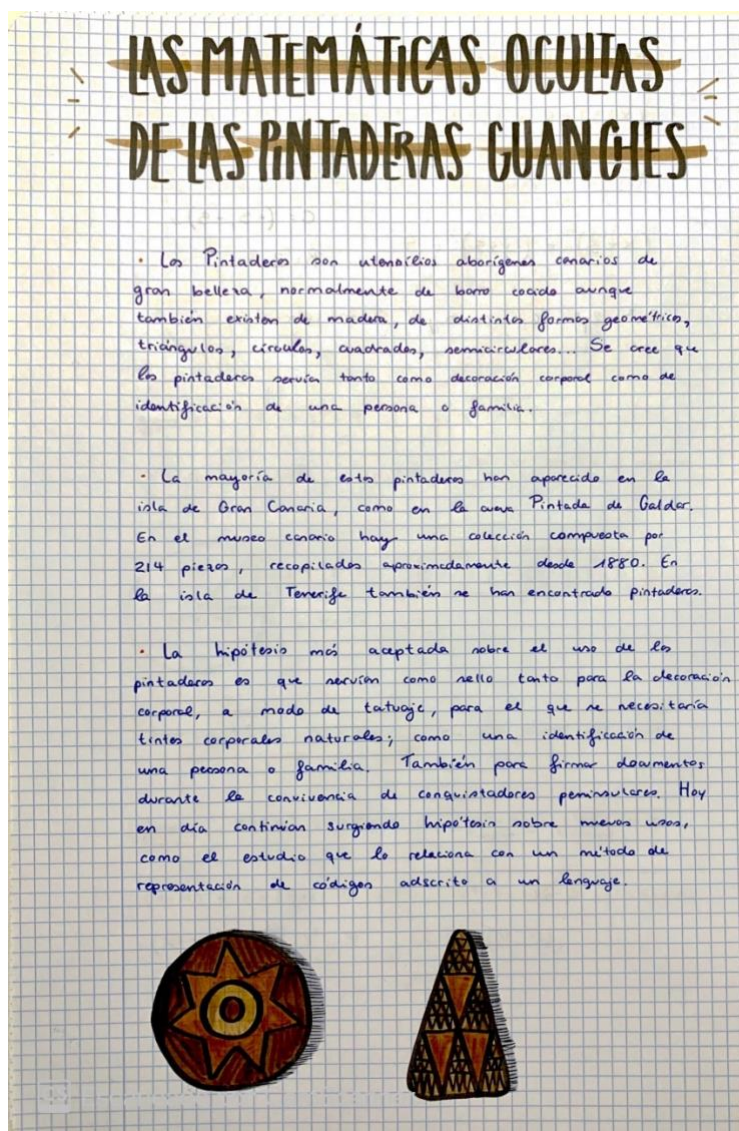 LAS MATEMÁTICAS OCULTAS
DE LAS PINTADERAS GUANCHES
· Las Pintaderas son utensilios aborígenes canarios de
gran belleza, normalmente de barro cocido aunque
también existen de madera, de distintas formas geométricas,
triángulos, círculos, cuadrados, semicirculares... Se cree que
las pintaderas servían tanto como decoración corporal como de
identificación de una persona o familia.
· La mayoría de estas pintaderas han aparecido en la
isla de Gran Canaria, como en la cueva Pintada de Galdar.
En el museo canario hay una colección compuesta por
214 piezas, recopiladas aproximadamente desde 1880. En
la isla de Tenerife también se han encontrado pintaderas.
· La hipótesis más aceptada sobre el uso de las
pintaderas es que servían como sello tanto para la decoración
corporal, a modo de tatuaje, para el que se necesitaría
tintes corporales naturales; como una identificación de
una persona o familia. También para firmar documentos
durante la convivencia de conquistadores peninsulares. Hoy
en día continúan surgiendo hipótesis sobre nuevos usos,
como el estudio que lo relaciona con un método de
representación de códigos adscrito a un lenguaje.